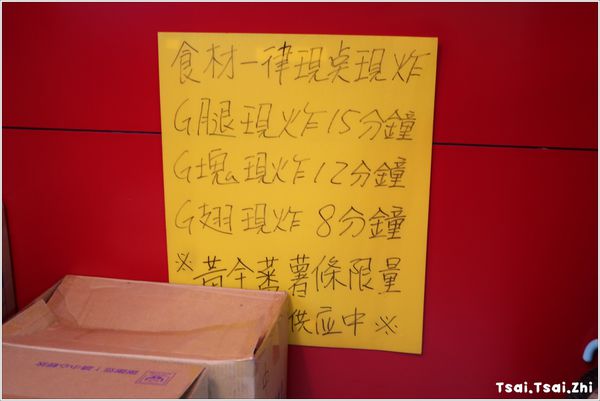 食材一律現奌現炸
G腿現炸15分鐘
G塊現炸12分鐘
G翅現炸 8分鐘
※黃金蕃薯條限量
供应中※
Tsai.Tsai.Zhi